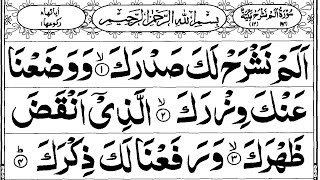 سُوْرَةُ اَلَمْ نَشْرَحْ مَكِّيَّةٌ بِسْمِ اللّٰهِ الرَّحْمٰنِ الرَّحِيْمِ اٰيَاتُهَا رُكُوْعُهَا
اَلَمْ نَشْرَحْ لَكَ صَدْرَكَ ۙ﴿۱﴾ وَوَضَعْنَا
عَنْكَ وِزْرَكَ ۙ﴿۲﴾ الَّذِیْۤ اَنْقَضَ
ظَهْرَكَ ۙ﴿۳﴾ وَرَفَعْنَا لَكَ ذِكْرَكَ ؕ﴿۴﴾